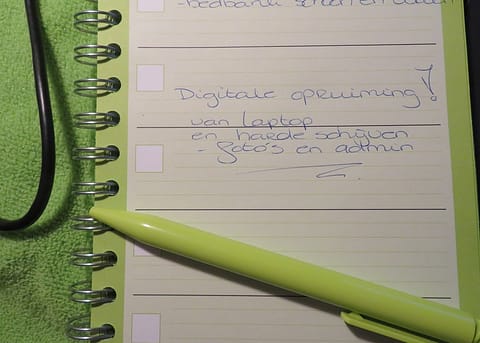 -bedbank
Digitale opruiming!
van laptop
en harde schijven
- foto's en admin